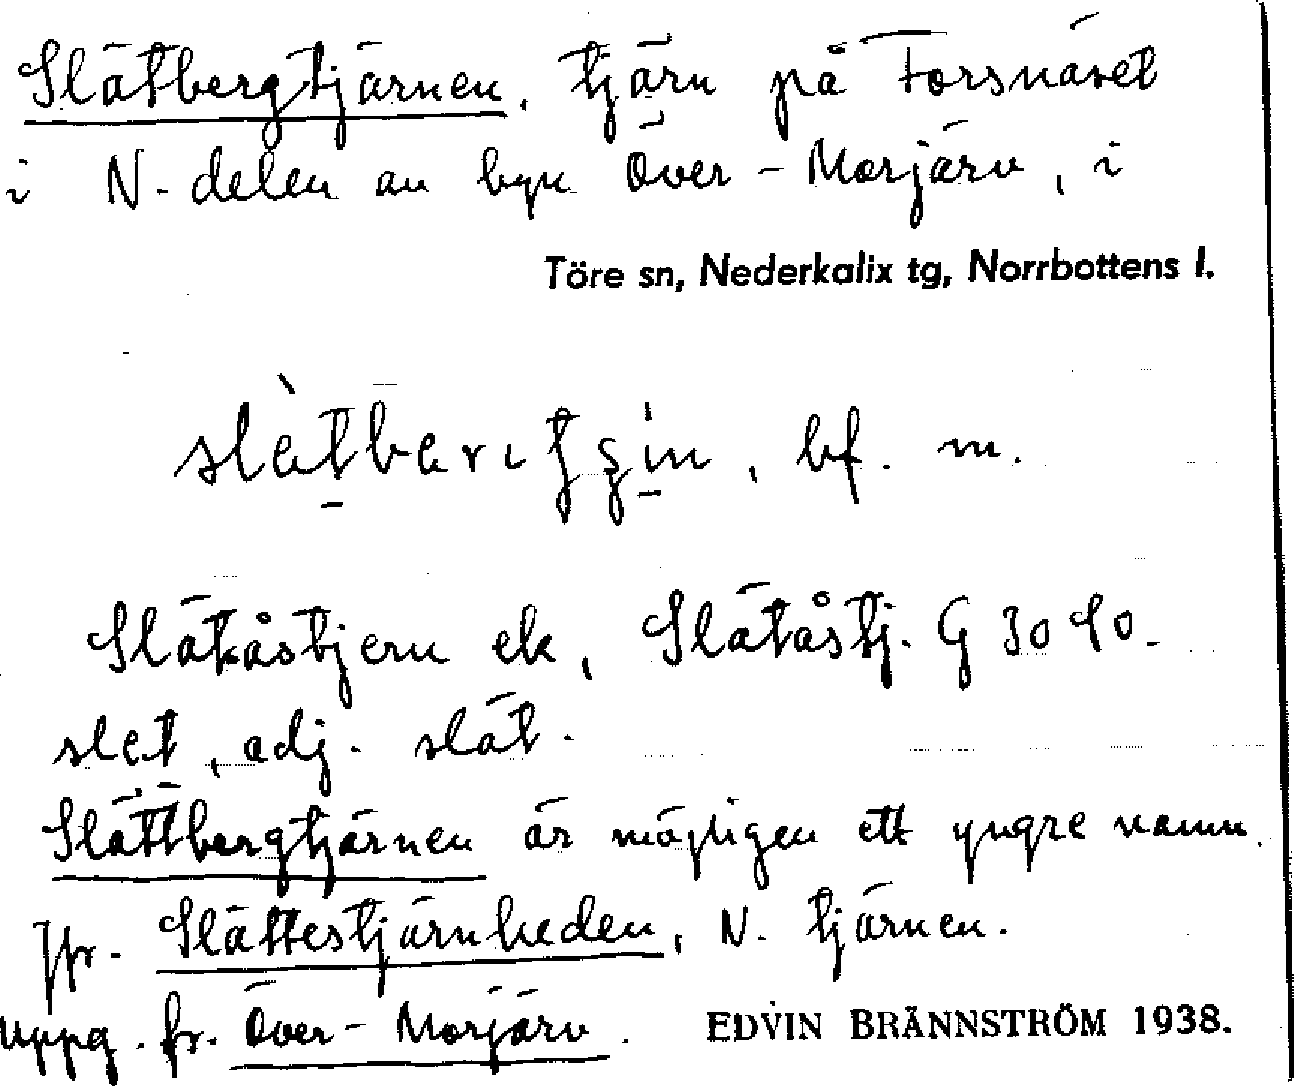 Slätbergtjärnen, tjärn på Forsnäset
i N-delen av byn Över-Morjärv, i
Töre sn, Nederkalix tg, Norrbottens l.
bf. m.
Slätåstjern ek, Slätåstj. G 3090.
slet, adj. slät.
Slättbergtjärnen är möjligen ett yngre namn.
Jfr. Slättestjärnheden, N. tjärnen.
Uppg. fr. Över-Morjärv. EDVIN BRÄNNSTRÖM 1938.